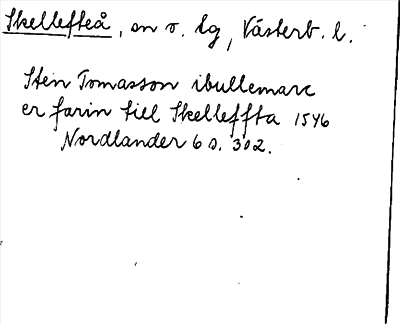 Skellefteå, sn o. lg, Västerb. l.
Sten Tomasson ibullemarc
er farin till Skelleffta 1546
Nordlander 6 s. 302.